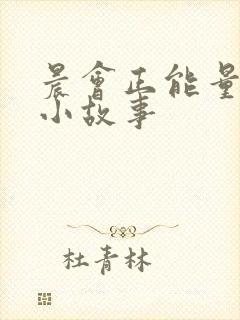 晨會正能量
小故事
杜青林